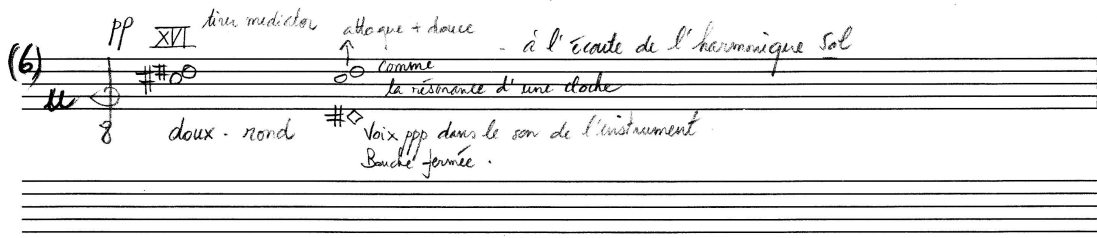 pp XVI tirer mediator attaque + douce - à l'écoute de l'harmonique Sol
(6)
comme
la résonance d'une cloche
8 doux - rond Voix ppp dans le son de l'instrument
Bouche fermée.